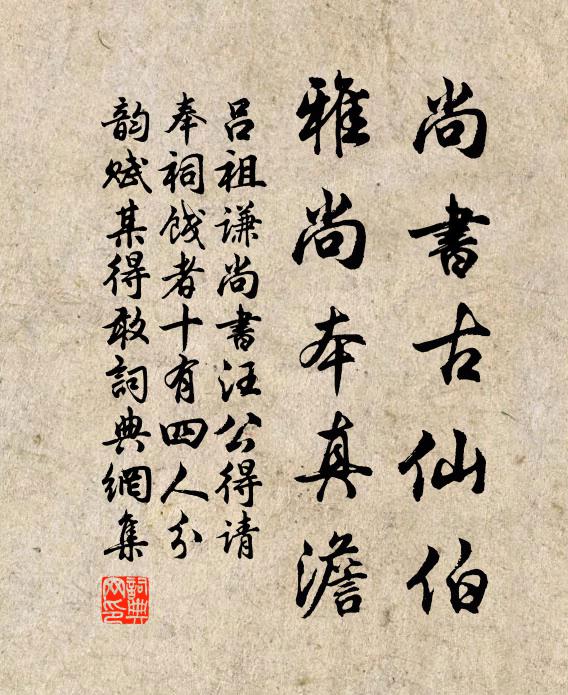 尚書古仙伯
雅尚本真澹
吕祖谦尚書汪公得请
奉祠饯者十有四人分
韵赋某得敢詞典網集
詞典